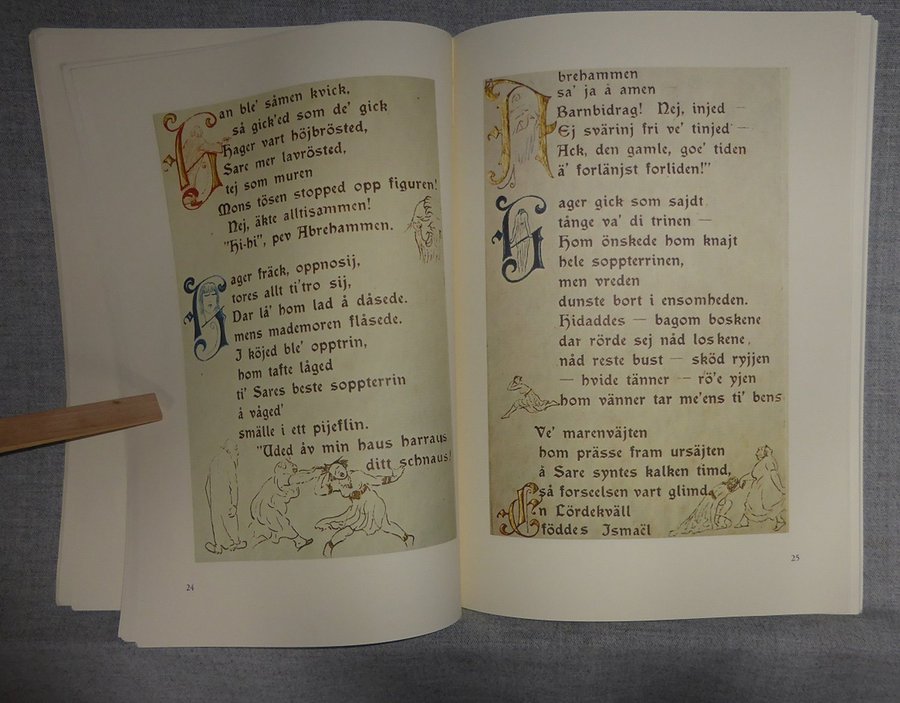 Han ble' såmen kvick,
så gick'ed som de' gick
Hager vart höjbrösted,
Sare mer lavrösted,
tej som muren
Mons tösen stopped opp figuren!
Nej, äkte alltisammen!
"Hi-hi", pev Abrehammen.
Hager fräck, oppnosij,
tores allt ti'tro sij,
Dar lå' hom lad å dåsede.
mens mademoren flåsede.
I köjed ble' opptrin,
hom tafte låged
ti' Sares beste soppterrin
å våged'
smälle i ett pijeflin.
"Uded åv min haus harraus
ditt schnaus!
24
Abrehammen
sa' ja å amen
Barnbidrag! Nej, injed —
Ej svärinj fri ve' tinjed —
Ack, den gamle, goe' tiden
ä' forlänjst forliden!"
Hager gick som sajdt
tånge va' di trinen —
Hom önskede hom knajt
hele soppterrinen,
men vreden
dunste bort i ensomheden.
Hidaddes — bagom boskene
dar rörde sej nåd loskene,
nåd reste bust — sköd ryjjen
— hvide tänner — rö'e yjen
hom vänner tar me'ens ti' bens
Ve' marenväjten
hom prässe fram ursäjten
å Sare syntes kalken timd,
så forseelsen vart glimd.
En Lördekväll
föddes Ismaël
25